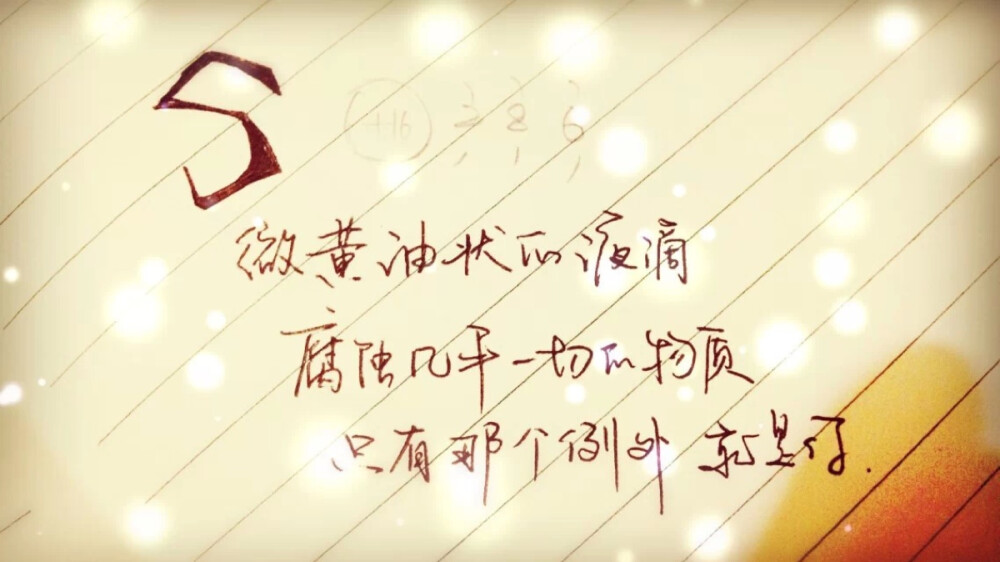 S +16 2 8 6
微黄油状的液滴
腐蚀几乎一切的物质
只有那个例外 就是你.